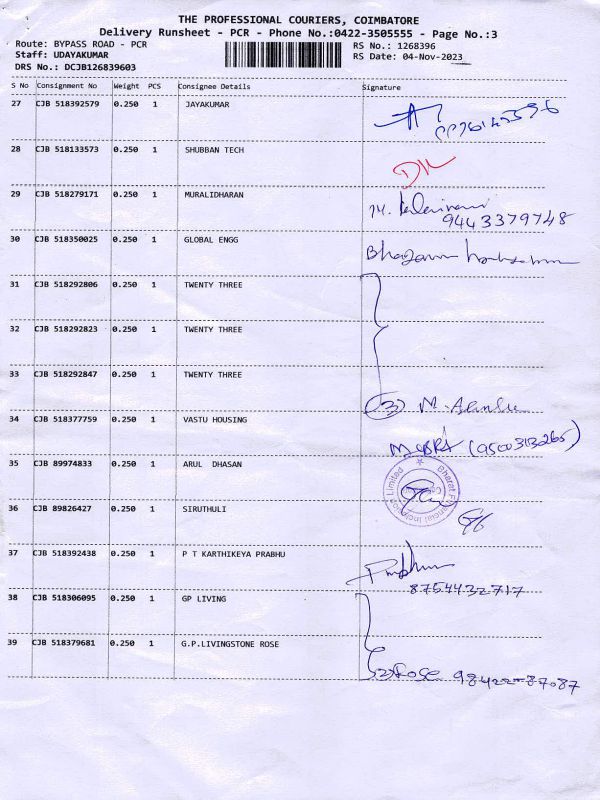 THE PROFESSIONAL COURIERS, COIMBATORE
Delivery Runsheet - PCR - Phone No.:0422-3505555 - Page No.:3
Route: BYPASS ROAD - PCR RS No.: 1268396
Staff: UDAYAKUMAR RS Date: 04-Nov-2023
DRS No.: DCJB126839603
S No Consignment No Weight PCS Consignee Details Signature
27 CJB 518392579 0.250 1 JAYAKUMAR
28 CJB 518133573 0.250 1 SHUBBAN TECH
29 CJB 518279171 0.250 1 MURALIDHARAN
9443379748
30 CJB 518350025 0.250 1 GLOBAL ENGG
31 CJB 518292806 0.250 1 TWENTY THREE
32 CJB 518292823 0.250 1 TWENTY THREE
33 CJB 518292847 0.250 1 TWENTY THREE
(3) M.
34 CJB 518377759 0.250 1 VASTU HOUSING
35 CJB 89974833 0.250 1 ARUL DHASAN
Bharat Financial Inclusion Limited
36 CJB 89826427 0.250 1 SIRUTHULI
37 CJB 518392438 0.250 1 P T KARTHIKEYA PRABHU
Prabhu
8754432717
38 CJB 518306095 0.250 1 GP LIVING
39 CJB 518379681 0.250 1 G.P.LIVINGSTONE ROSE
(2) Rose 98422-87087